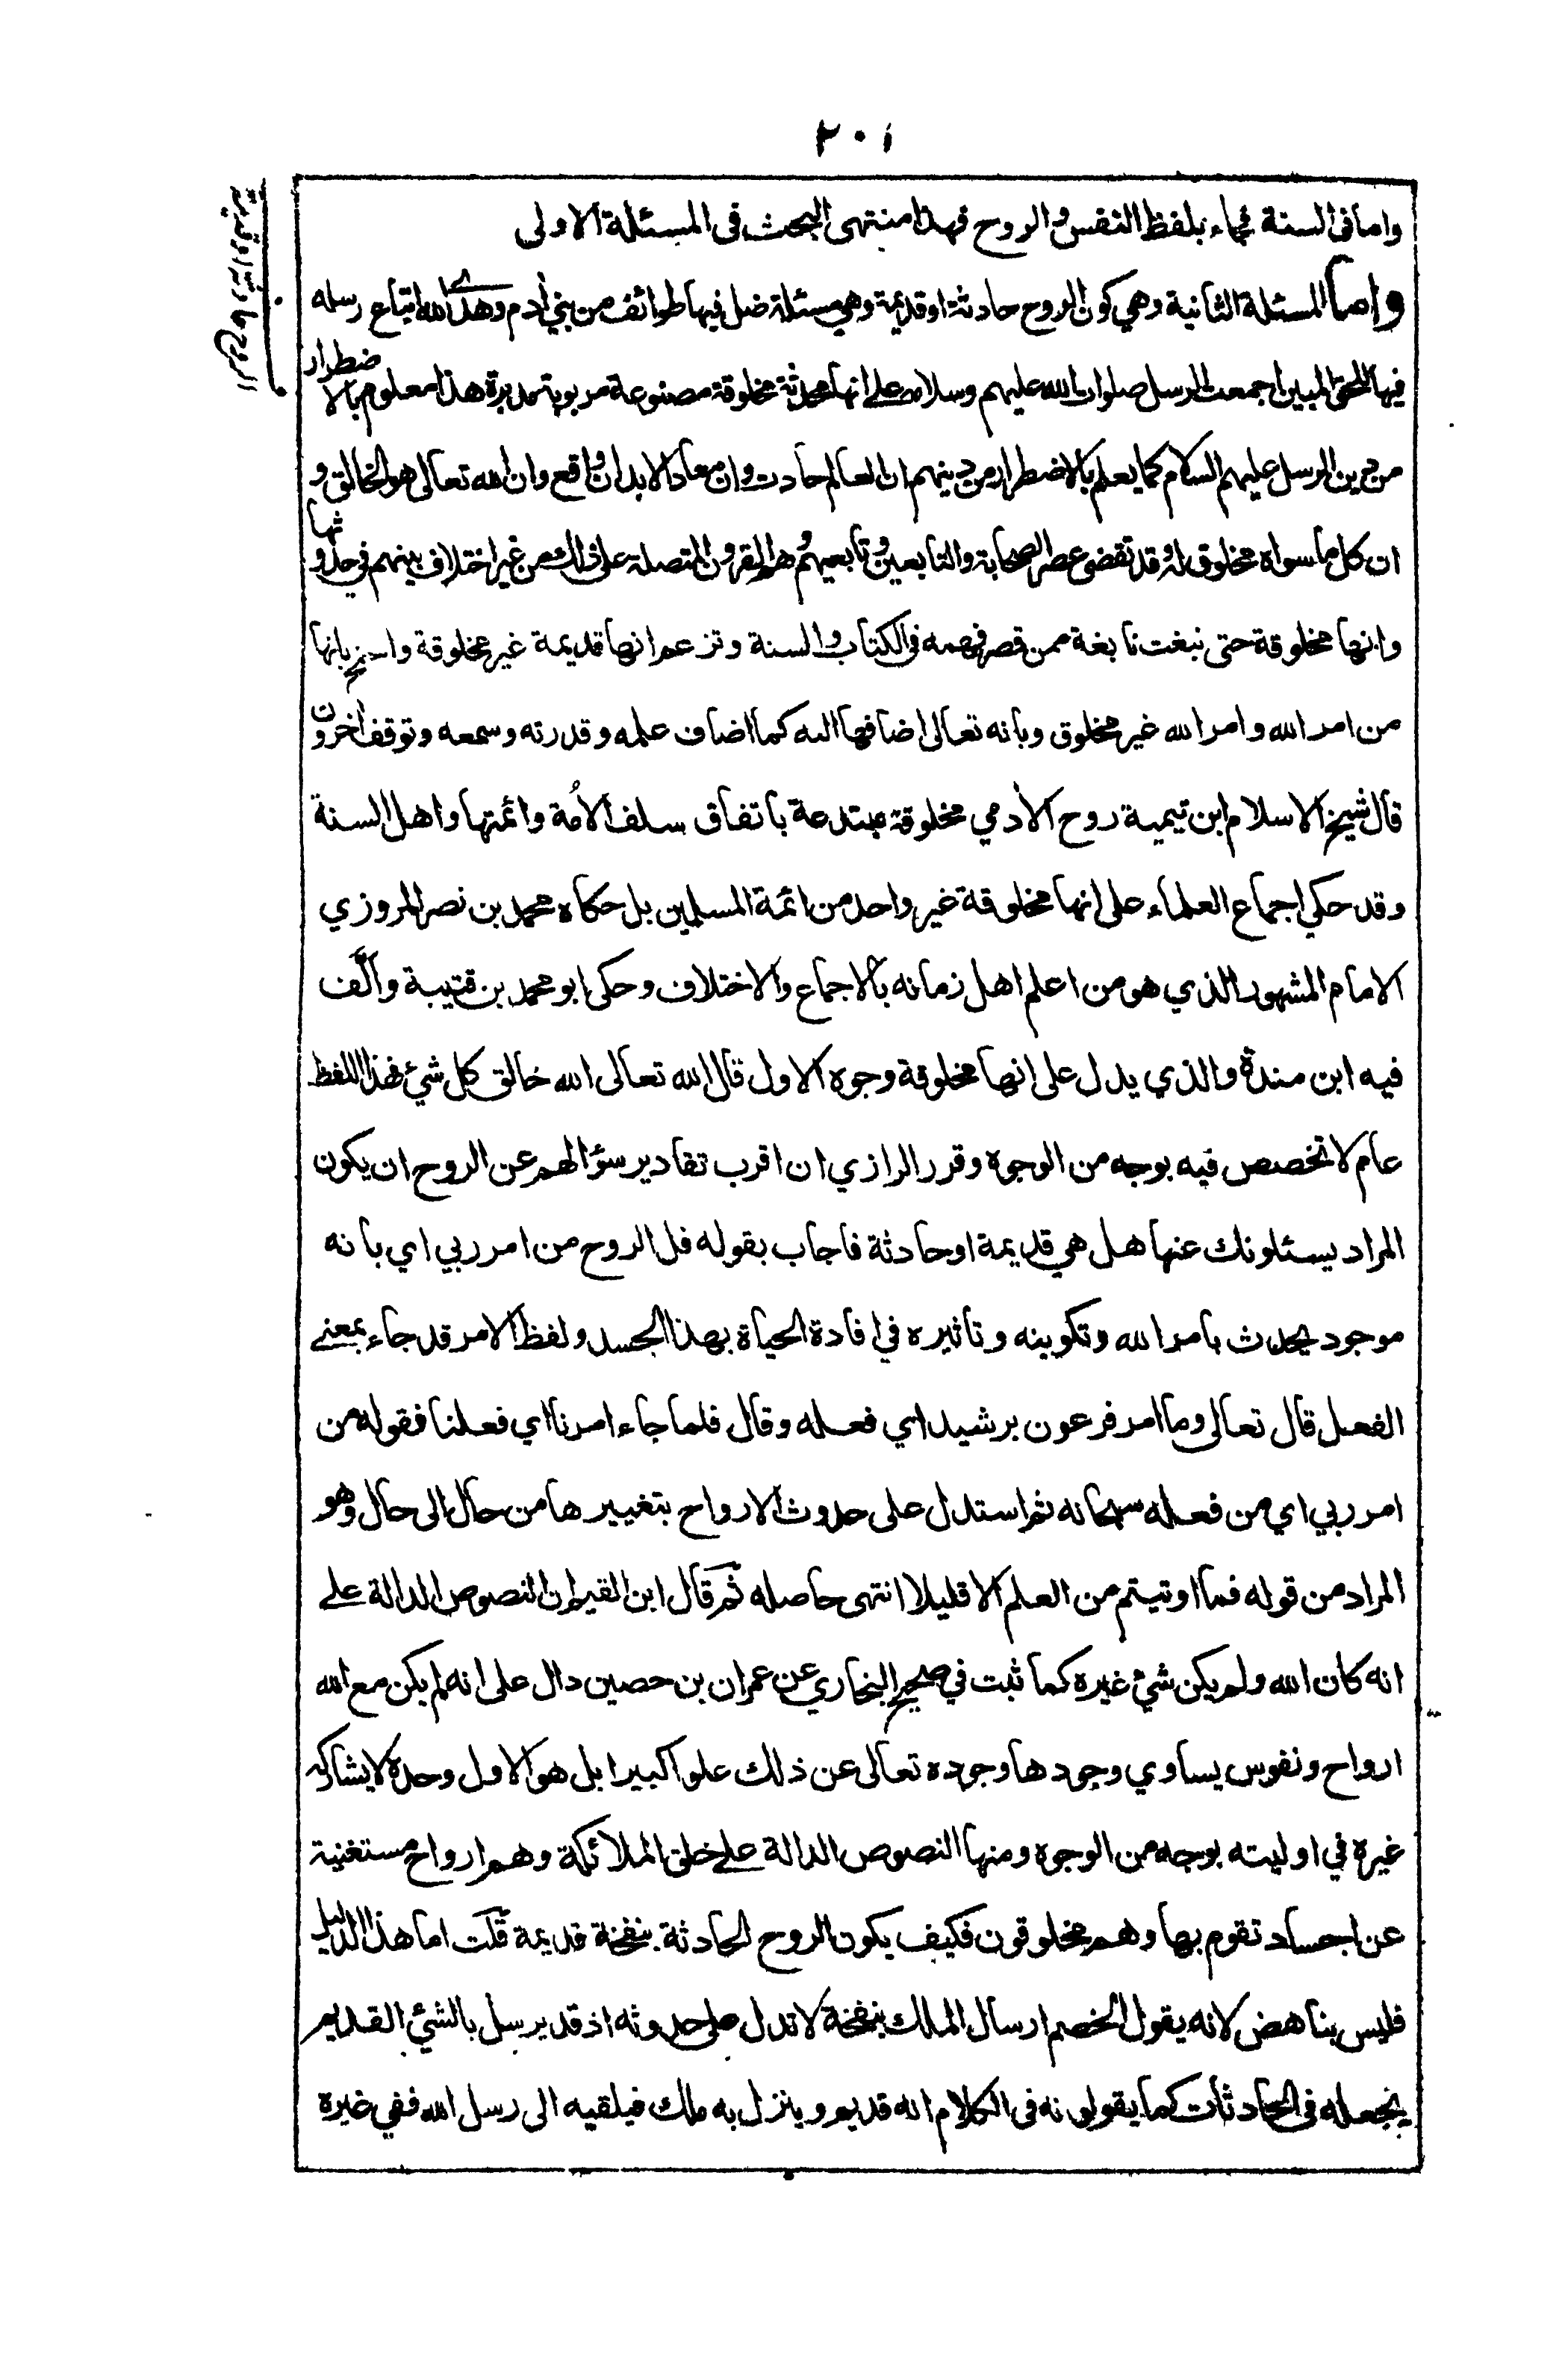 ٢٠١
الروح حادثة او قديمة
واما فى السنة فجاء بلفظ النفس والروح فهذا منتهى البحث فى المسئلة الاولى
واما المسئلة الثانية وهي كون الروح حادثة او قديمة وهي مسئلة ضل فيها طوائف من بني أدم وهدى الله اتباع رسله
فيها للحق المبين اجمعت الرسل صلوات الله عليهم وسلامه على انها محدثة مخلوقة مصنوعة مربوبة مدبرة هذا معلوم بالاضطرار
من دين الرسل عليهم السلام كما يعلم بالاضطرار من دينهم ان العالم حادث وان معاد الابدان واقع وان الله تعالى هو الخالق و
ان كل ما سواه مخلوق له وقد تقضى عصر الصحابة والتابعين وتابعيهم وهم القرون المتصلة على ذلك من غير اختلاف بينهم في حدوثها
وانها مخلوقة حتى نبغت نابغة ممن قصر فهمه فى الكتاب والسنة وتزعم انها قديمة غير مخلوقة واحتج بانها
من امر الله وامر الله غير مخلوق وبانه تعالى اضافها اليه كما اضاف علمه وقدرته وسمعه وتوقف أخرون
قال شيخ الاسلام ابن تيمية روح الأدمي مخلوقة مبتدعة باتفاق سلف الأمة وائمتها واهل السنة
وقد حكي اجماع العلماء على انها مخلوقة غير واحد من ائمة المسلمين بل حكاه محمد بن نصر المروزي
الامام المشهور الذي هو من اعلم اهل زمانه بالاجماع والاختلاف وحكى ابو محمد بن قتيبة والّف
فيه ابن مندة والذي يدل على انها مخلوقة وجوه الاول قال الله تعالى الله خالق كل شيئ فهذا اللفظ
عام لا تخصص فيه بوجه من الوجوه وقرر الرازي ان اقرب تقادير سؤالهم عن الروح ان يكون
المراد يسئلونك عنها هل هي قديمة او حادثة فاجاب بقوله قل الروح من امر ربي اي بانه
موجود يحدث بامر الله وتكوينه وتاثيره في افادة الحياة بهذا الجسد ولفظ الامر قد جاء بمعنے
الفعل قال تعالى وما امر فرعون برشيد اي فعله وقال فلما جاء امرنا اي فعلنا فقوله من
امر ربي اي من فعله سبحانه ثم استدل على حدوث الارواح بتغييرها من حال الى حال وهو
المراد من قوله فما اوتيتم من العلم الا قليلا انتهى حاصله ثم قال ابن القيم ان النصوص الدالة علے
انه كان الله ولم يكن شيئ غيره كما ثبت في صحيح البخاري عن عمران بن حصين دال على انه لم يكن مع الله
ارواح ونفوس يساوي وجودها وجوده تعالى عن ذلك علوا كبيرا بل هو الاول وحده لا يشاركه
غيره في اوليته بوجه من الوجوه ومنها النصوص الدالة علے خلق الملائكة وهم ارواح مستغنية
عن اجساد تقوم بها وهم مخلوقون فكيف يكون الروح الحادثة بنفخة قديمة قلت اما هذا الدليل
فليس بناهض لانه يقول الخصم ارسال الملك بنفخة لا تدل على حدوثه اذ قد يرسل بالشيئ القديم
يجعله فى الحادثات كما يقولونه فى الكلام انه قديم وينزل به ملك فيلقيه الى رسل الله ففي غيره